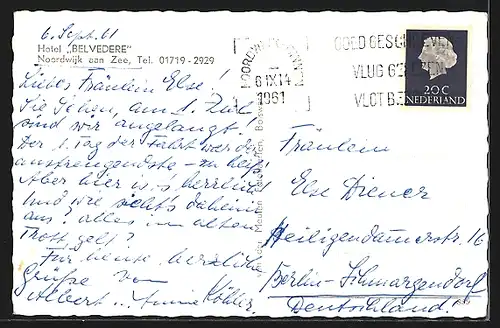 6. Sept. 61
Hotel „BELVEDERE"
Noordwijk aan Zee, Tel. 01719 - 2929
Liebes Fräulein Else!
Sie sehen, am 1. Ziel
sind wir angelangt!
Der 1. Tag der Fahrt war der
anstrengendste - zu heiß!
Aber hier w.'s herrlich
Und wie sieht's daheim
aus? Alles im alten
Trott, gelt?
Für heute herzliche
Grüße von
Albert .. Anna Köhler
NOORDWIJK
6 IX 14
1961
GOED GESCHREVEN
VLUG GELEZEN
VLOT BE
20C
NEDERLAND
Fräulein
Else Diener
Heiligendammerstr. 16
Berlin-Schmargendorf
Deutschland.